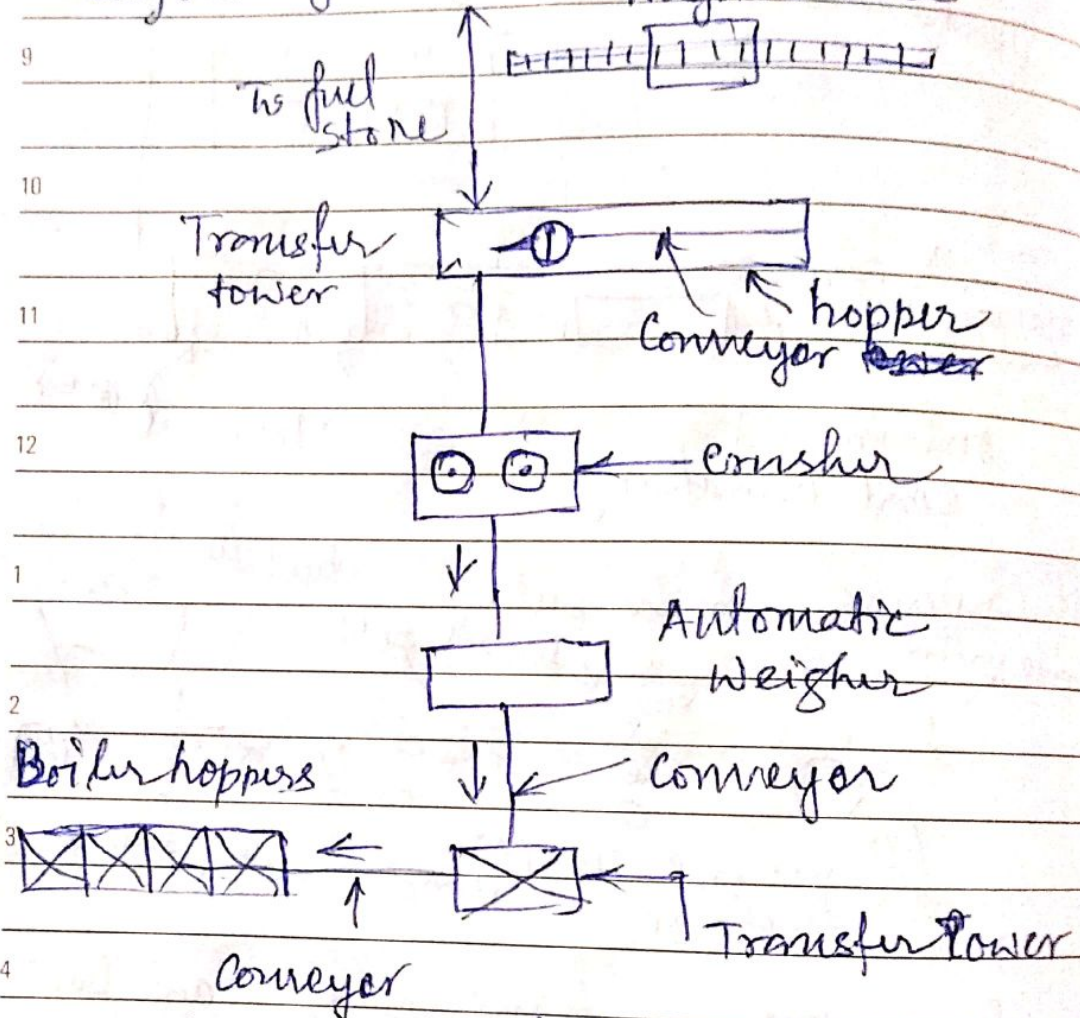 9
To fuel
store
10
Transfer
tower
11
hopper
Conveyor
12
Crusher
1
Automatic
Weigher
2
Boiler hoppers
Conveyor
3
Transfer Tower
4
Conveyor